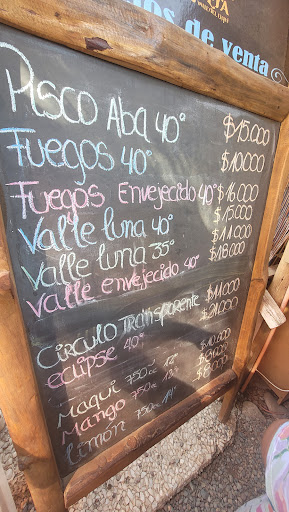 os de venta
Pisco Aba 40° $15.000
Fuegos 40° $10.000
Fuegos Envejecido 40° $16.000
Valle luna 40° $15.000
Valle luna 35° $11.000
Valle envejecido 40° $18.000
Circulo Transparente $11.000
eclipse 40° $21.000
Maqui 750cc 12° $10.000
Mango 750cc 13° $8.000
Limón 750cc 14° $8.000